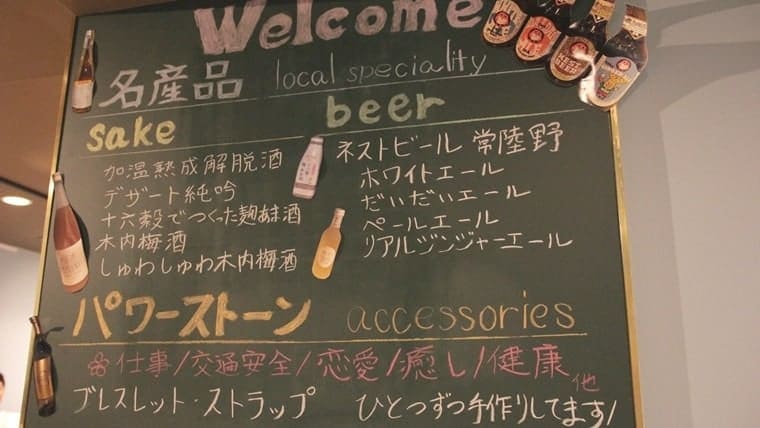 Welcome
名産品 local speciality
sake
加温熟成解脱酒
デザート純吟
十六穀でつくった麹あま酒
木内梅酒
しゅわしゅわ木内梅酒
beer
ネストビール 常陸野
ホワイトエール
だいだいエール
ペールエール
リアルジンジャーエール
パワーストーン accessories
仕事/交通安全/恋愛/癒し/健康 他
ブレスレット・ストラップ ひとつずつ手作りしてます!